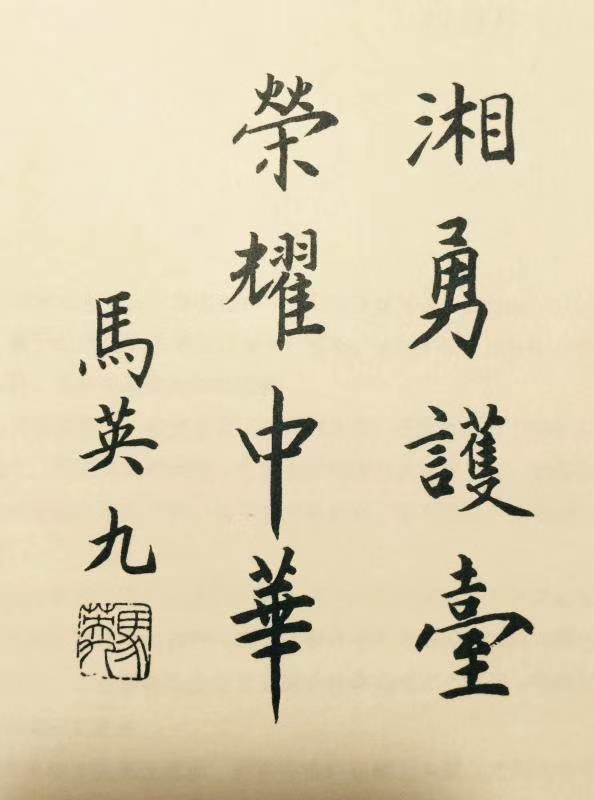 湘勇護臺
榮耀中華
馬英九